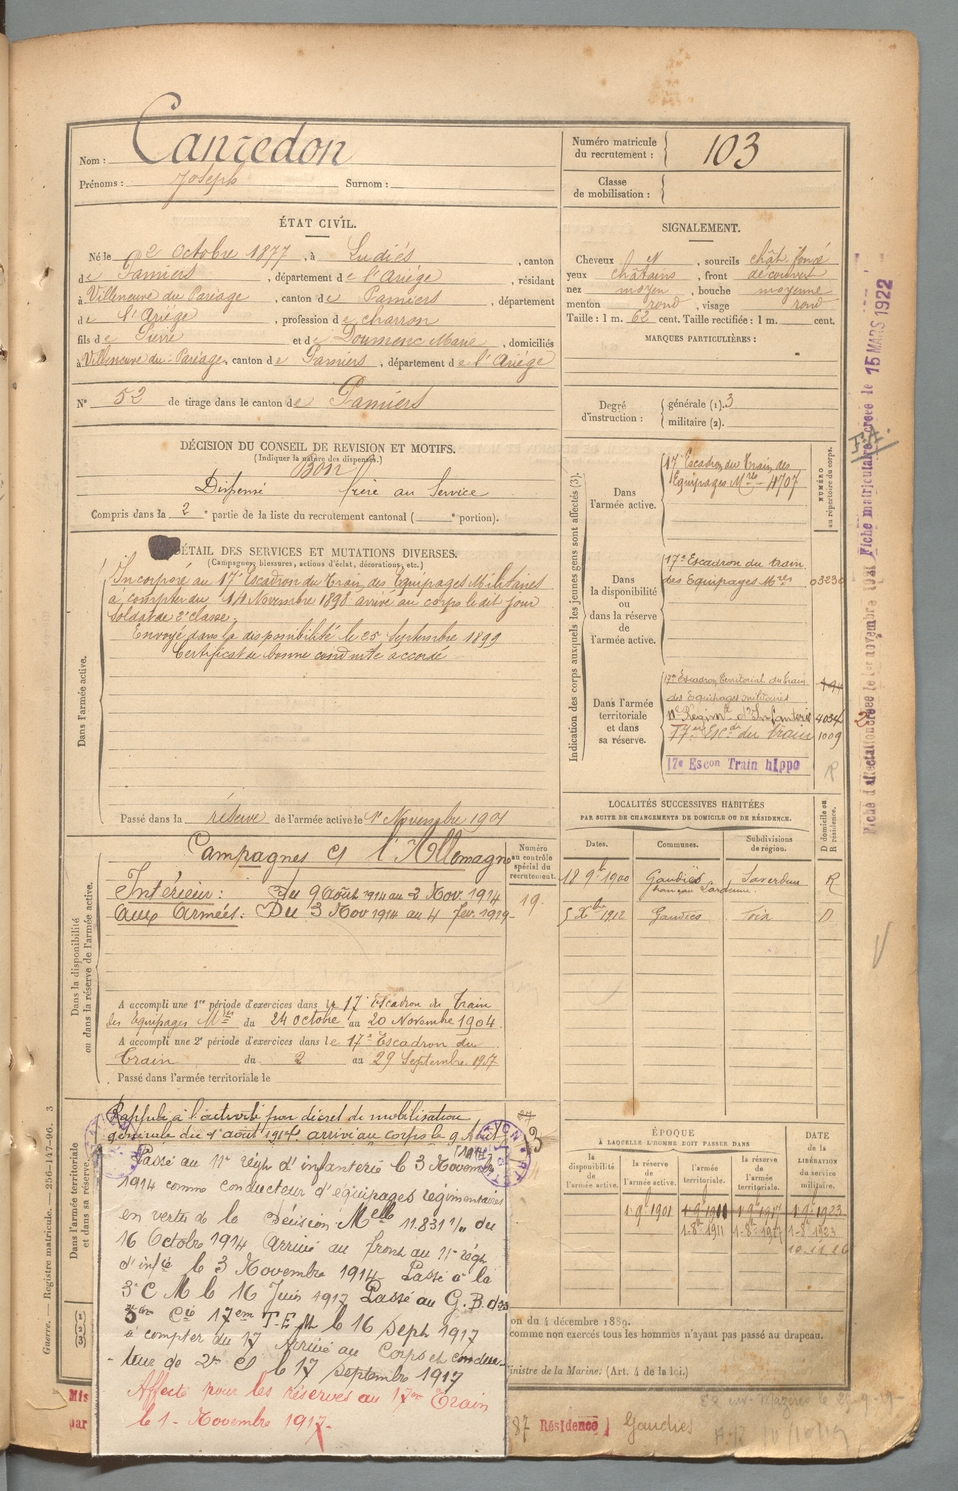 Nom : Canredon
Prénoms : Joseph Surnom :
Numéro matricule du recrutement : 103
Classe de mobilisation :
ÉTAT CIVIL.
Né le 2 Octobre 1877, à Ludiès, canton
de Pamiers, département de l'Ariège, résidant
à Villeneuve du Pariage, canton de Pamiers, département
de l'Ariège, profession de charron
fils de et de Doumenc Marie, domiciliés
à Villeneuve du Pariage, canton de Pamiers, département de l'Ariège
N° 52 de tirage dans le canton de Pamiers
SIGNALEMENT.
Cheveux N, sourcils chât. foncé
yeux châtains, front découvert
nez moyen, bouche moyenne
menton rond, visage rond
Taille : 1 m. 62 cent. Taille rectifiée : 1 m. cent.
MARQUES PARTICULIÈRES :
Degré d'instruction : générale (1). 3
militaire (2).
DÉCISION DU CONSEIL DE REVISION ET MOTIFS.
(Indiquer la nature des dispenses.)
Bon
Dispensé frère au Service
Compris dans la 2e partie de la liste du recrutement cantonal ( e portion).
DÉTAIL DES SERVICES ET MUTATIONS DIVERSES.
(Campagnes, blessures, actions d'éclat, décorations, etc.)
Dans l'armée active.
Incorporé au 17e Escadron du Train des Equipages Militaires
à compter du 14 Novembre 1898 arrivé au corps le dit jour
soldat de 2e classe.
Envoyé dans la disponibilité le 25 Septembre 1899
Certificat de bonne conduite accordé
Passé dans la réserve de l'armée active le 1er Novembre 1901
Indication des corps auxquels les jeunes gens sont affectés (3).
NUMÉRO au répertoire du corps.
Dans l'armée active.
17e Escadron du Train des
Equipages Mres 4707
Dans la disponibilité ou dans la réserve de l'armée active.
17e Escadron du train
des Equipages Mres 03230
Dans l'armée territoriale et dans sa réserve.
17e Escadron territorial du train
des Equipages militaires
11e Régimt d'Infanterie 4034
17eme Escdn du train 1009
17e Escon Train hippo
R
Dans la disponibilité ou dans la réserve de l'armée active.
Campagnes c/ l'Allemagne
Intérieur : Du 9 Août 1914 au 2 Nov. 1914
Aux Armées : Du 3 Nov 1914 au 4 fev. 1919
Numéro au contrôle spécial du recrutement.
19.
A accompli une 1re période d'exercices dans le 17e Escadron du Train
des Equipages Mres du 24 octobre au 20 Novembre 1904.
A accompli une 2e période d'exercices dans le 17e Escadron du
Train du 2 au 29 Septembre 1907
Passé dans l'armée territoriale le
LOCALITÉS SUCCESSIVES HABITÉES
PAR SUITE DE CHANGEMENTS DE DOMICILE OU DE RÉSIDENCE.
Dates. Communes. Subdivisions de région. D domicile ou R résidence.
18 9bre 1900 Gaudiès Saverdun R
5 Xbre 1912 Gaudiès Foix D
Dans l'armée territoriale et dans sa réserve.
Rappelé à l'activité par décret de mobilisation
générale du 1er août 1914 arrivé au corps le 9 Août
1914
Passé au 11e régt d'infanterie le 3 Novembre
1914 comme conducteur d'équipages régimentaires
en vertu de la Décision Melle 11.831 1/10 du
16 Octobre 1914 Arrivé au front au 11e régt
d'infie le 3 Novembre 1914. Passé à la
3e C M le 16 Juin 1917 Passé au G.B.D 33
Cie 17em T.E.M le 16 Sept 1917
à compter du 17 Arrivé au Corps et conduc-
teur de 2me Cl le 17 septembre 1917
Affecté pour les réserves au 17me Train
le 1- Novembre 1917-
ÉPOQUE
À LAQUELLE L'HOMME DOIT PASSER DANS
la disponibilité de l'armée active. la réserve de l'armée active. l'armée territoriale. la réserve de l'armée territoriale. DATE de la LIBÉRATION du service militaire.
1-9bre 1901 1-9bre 1911 1-9bre 1917 1-9bre 1923
1-8bre 1911 1-8bre 1917 1-8bre 1923
on du 4 décembre 1889.
comme non exercés tous les hommes n'ayant pas passé au drapeau.
inistre de la Marine. (Art. 4 de la loi.)
Mis
par
87 Résidence Gaudies
Guerre. — Registre matricule. — 256-147-96. 3
Fiche matriculaire créée le 15 MARS 1922